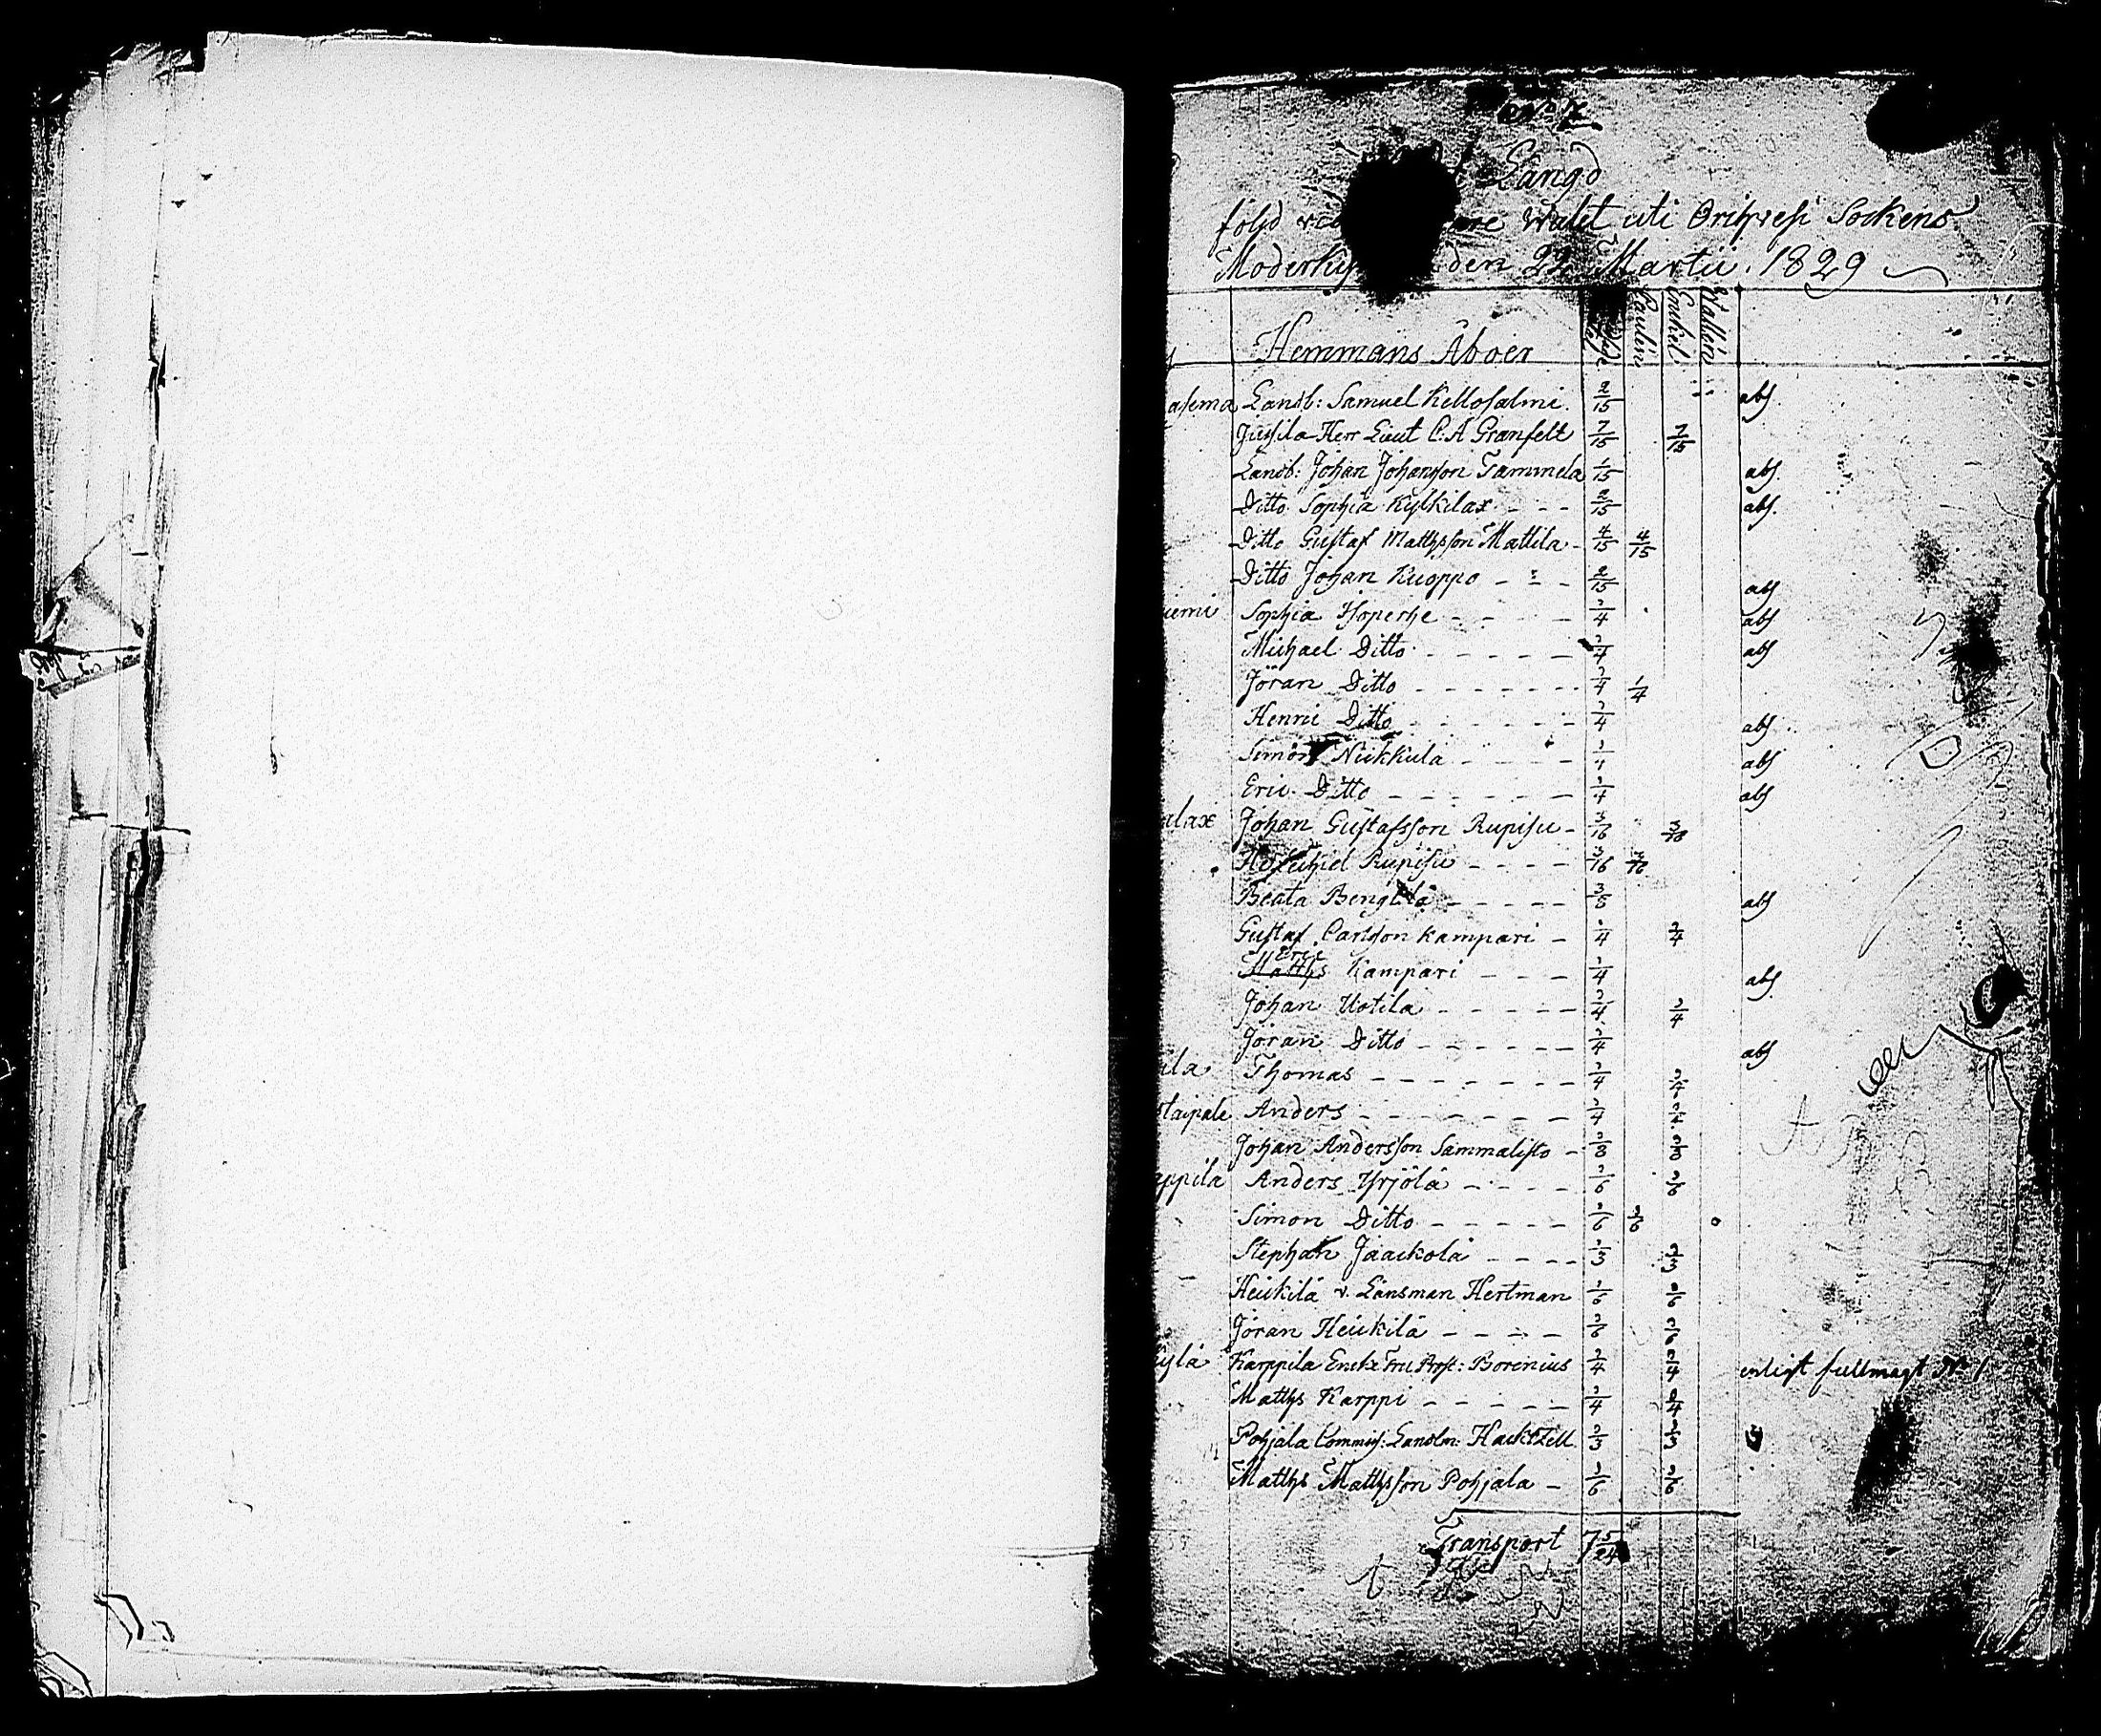 Längd
följd wid walet uti Orihvesi Sockens
Moderky den 22 Martii 1829
Hemmans Åboer Paulin Enckel Wallén
asema Landb: Samuel Kellosalmi 2/15 abs.
Jussila Herr Lieut C. A Granfelt 7/15 7/15
Landb: Johan Johansson Tammela 1/15 abs.
Ditto Sophia Kylkilax - - - 2/15 abs.
Ditto Gustaf Mattsson Mattila - 4/15 4/15
Ditto Johan Kuoppo - - - 2/15 abs
iemi Sophia Hoperhe - - - - 1/4 abs
Michael Ditto - - - - - 1/4 abs
Jöran Ditto - - - - - - 1/4 1/4
Henric Ditto - - - - - 1/4 abs
Simon Nickkula - - - - 1/4 abs
Eric Ditto - - - - - - 1/4 abs
alax Johan Gustafsson Rupisu - 3/16 3/16
Rupisu - - - - 3/16 3/16
Beata Bengtlä - - - - - abs
Gustaf Carlsson Kampari - 1/4 1/4
Eric
Matths Kampari - - - 1/4 abs
Johan Uotila - - - - - 1/4 1/4
Jöran Ditto - - - - - - 1/4 abs
ila Thomas - - - - - - - 1/4 1/4
taipale Anders - - - - - - - 1/4 1/4
Johan Andersson Sammalisto - 3/8 3/8
appila Anders Yrjölä - - - - 1/6 1/6
Simon Ditto - - - - - 1/6 1/6
Stephan Jaackola - - - - 1/3 1/3
Heickilä v. Länsman Hertman 1/6 1/6
Jöran Heickilä - - - - 1/6 1/6
kylä Karppila Encke Fru Prost: Borenius 1/4 1/4 enligt fullmagt N: 1
Matths Karppi - - - - - 1/4 1/4
Pohjala Commiss: Landtm: Hacktzell 1/3 1/3
Matths Mattsson Pohjala - 1/6 1/6
Transport 7 5/24